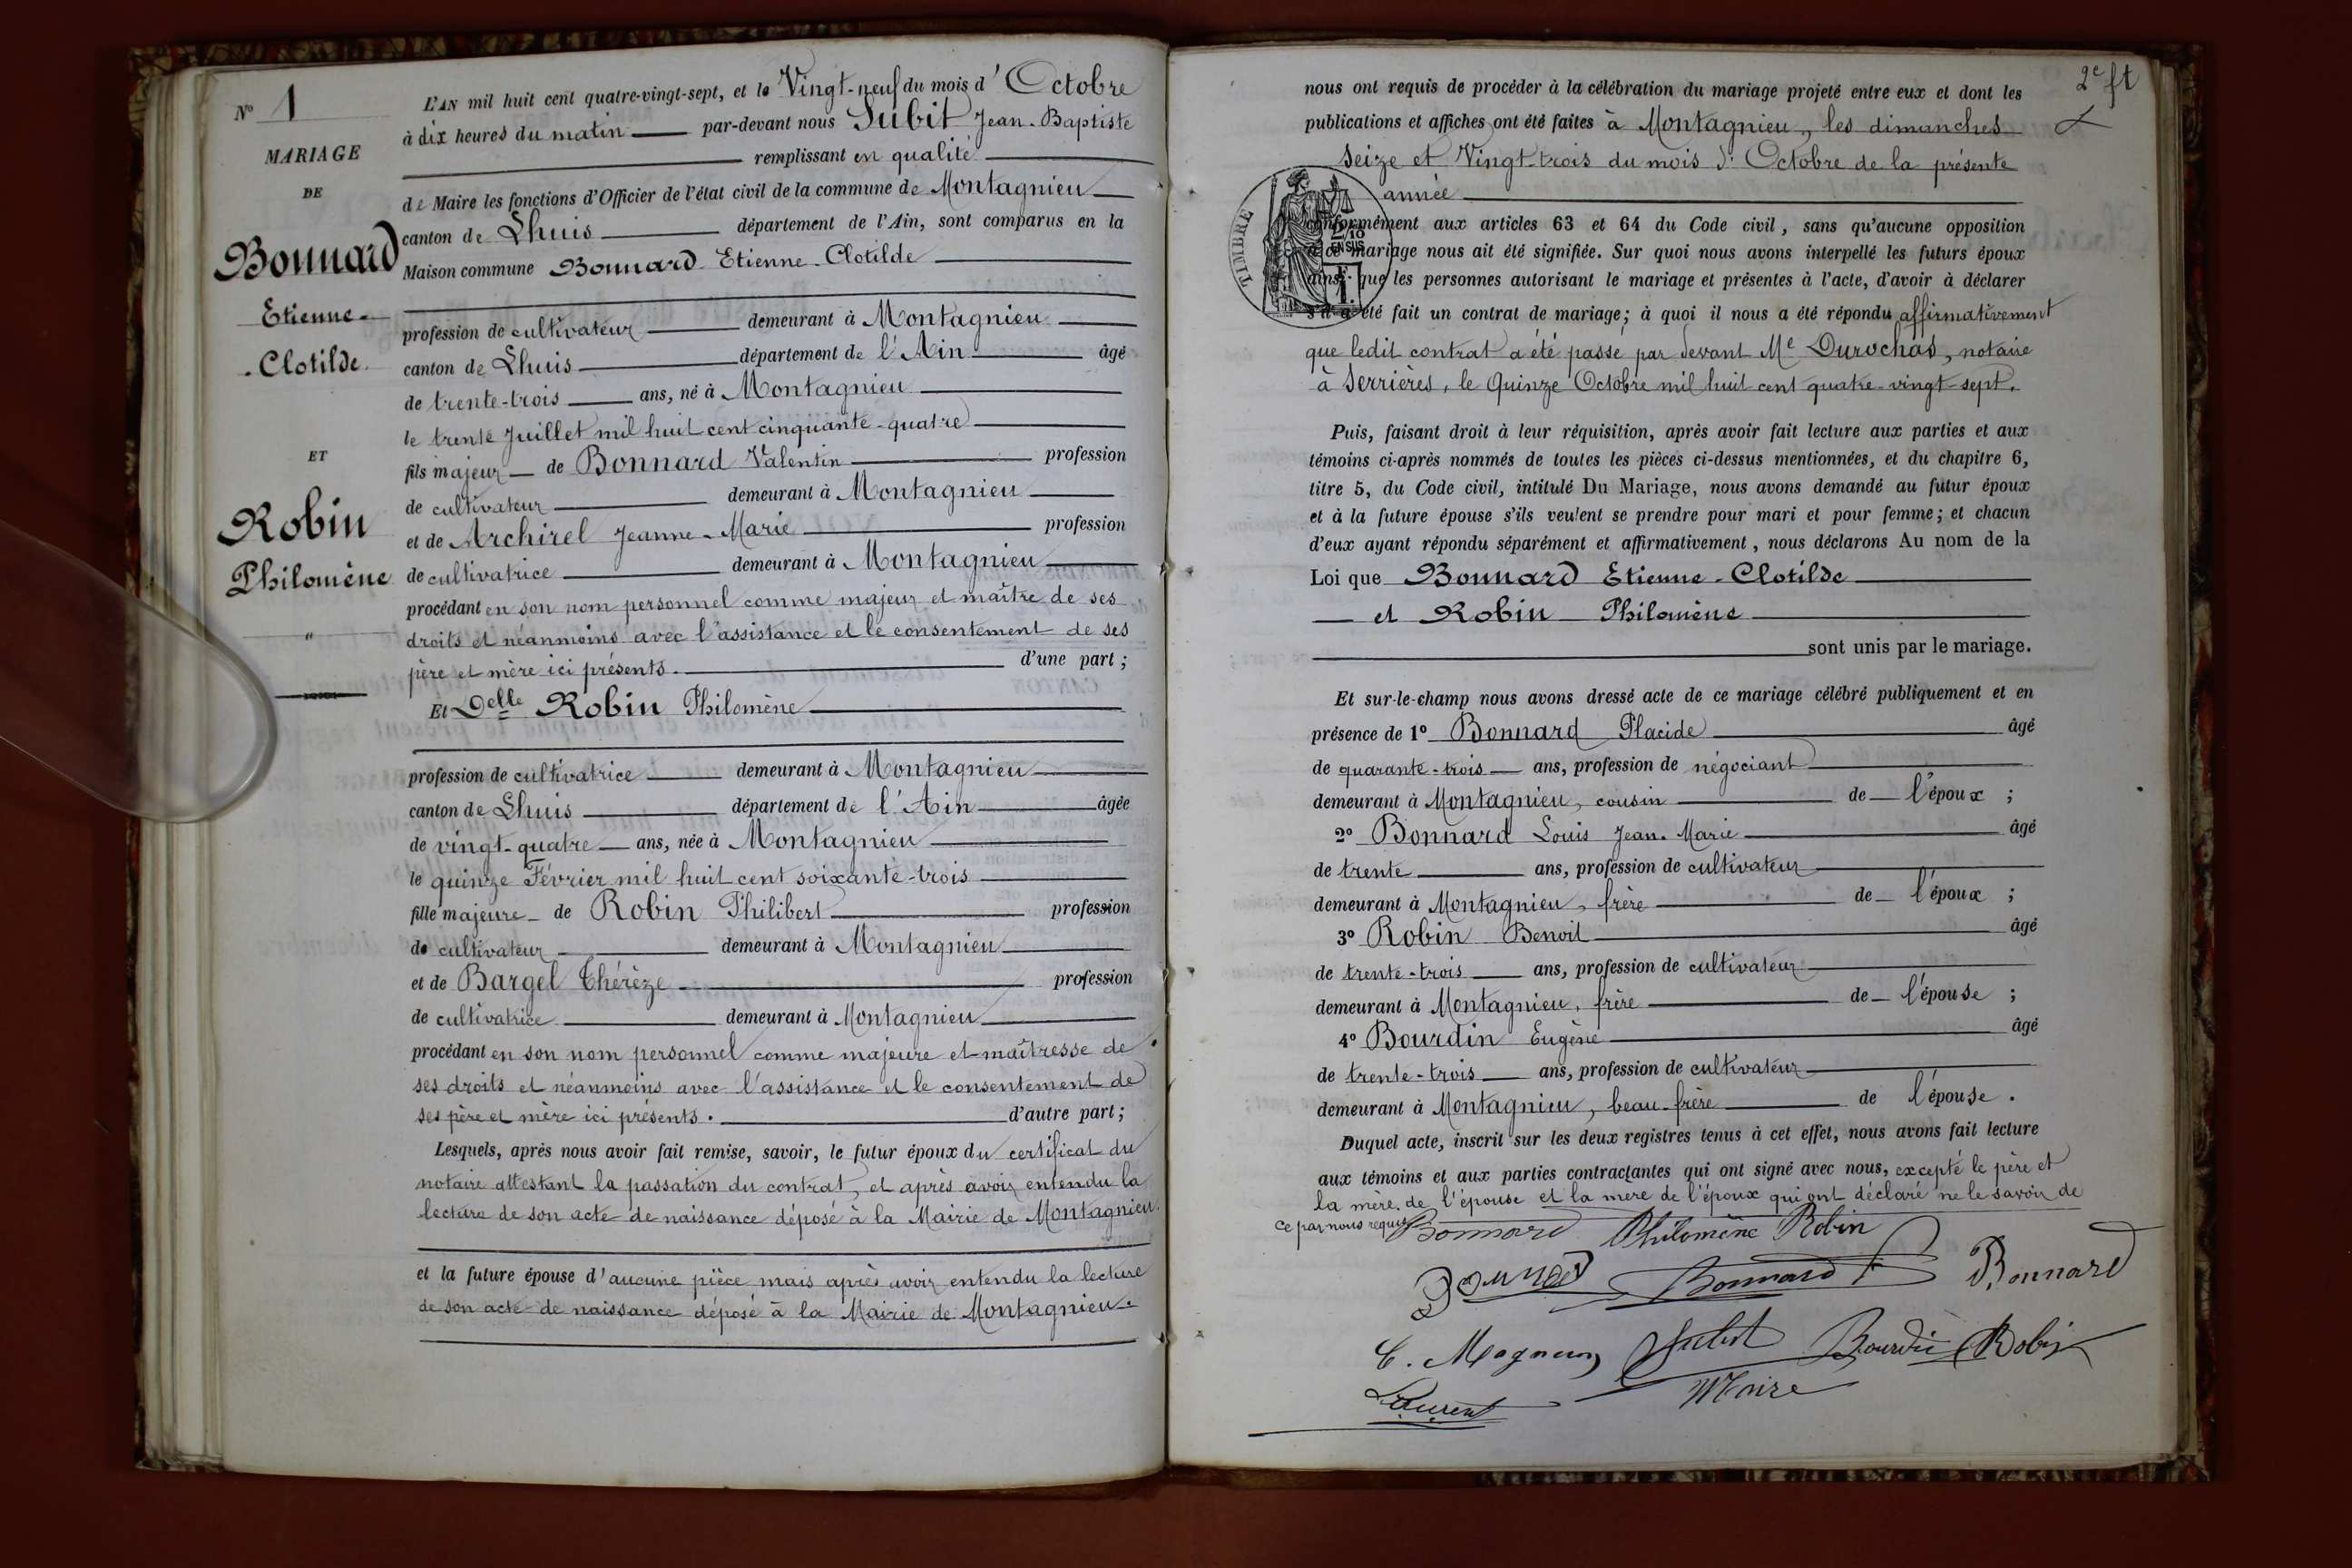 N° 1
MARIAGE
DE
Bonnard
Etienne-
Clotilde
ET
Robin
Philomène
"
L'AN mil huit cent quatre-vingt-sept, et le Vingt-neuf du mois d'Octobre
à dix heures du matin par-devant nous Subit Jean-Baptiste
remplissant en qualité
de Maire les fonctions d'Officier de l'état civil de la commune de Montagnieu
canton de Lhuis département de l'Ain, sont comparus en la
Maison commune Bonnard Etienne-Clotilde
profession de cultivateur demeurant à Montagnieu
canton de Lhuis département de l'Ain âgé
de trente-trois ans, né à Montagnieu
le trente Juillet mil huit cent cinquante-quatre
fils majeur de Bonnard Valentin profession
de cultivateur demeurant à Montagnieu
et de Archirel Jeanne-Marie profession
de cultivatrice demeurant à Montagnieu
procédant en son nom personnel comme majeur et maître de ses
droits et néanmoins avec l'assistance et le consentement de ses
père et mère ici présents. d'une part;
Et Delle Robin Philomène
profession de cultivatrice demeurant à Montagnieu
canton de Lhuis département de l'Ain âgée
de vingt-quatre ans, née à Montagnieu
le quinze Février mil huit cent soixante-trois
fille majeure de Robin Philibert profession
de cultivateur demeurant à Montagnieu
et de Bargel Thérèze profession
de cultivatrice demeurant à Montagnieu
procédant en son nom personnel comme majeure et maîtresse de
ses droits et néanmoins avec l'assistance et le consentement de
ses père et mère ici présents. d'autre part;
Lesquels, après nous avoir fait remise, savoir, le futur époux du certificat du
notaire attestant la passation du contrat, et après avoir entendu la
lecture de son acte de naissance déposé à la Mairie de Montagnieu.
et la future épouse d'aucune pièce mais après avoir entendu la lecture
de son acte de naissance déposé à la Mairie de Montagnieu.
2e ft
nous ont requis de procéder à la célébration du mariage projeté entre eux et dont les
publications et affiches ont été faites à Montagnieu, les dimanches
Seize et Vingt-trois du mois d'Octobre de la présente
année
TIMBRE
2/10
EN SUS
conformément aux articles 63 et 64 du Code civil, sans qu'aucune opposition
à ce mariage nous ait été signifiée. Sur quoi nous avons interpellé les futurs époux
ainsi que les personnes autorisant le mariage et présentes à l'acte, d'avoir à déclarer
s'il a été fait un contrat de mariage; à quoi il nous a été répondu affirmativement
que ledit contrat a été passé par devant Me Durochas, notaire
à Serrières, le Quinze Octobre mil huit cent quatre-vingt-sept.
Puis, faisant droit à leur réquisition, après avoir fait lecture aux parties et aux
témoins ci-après nommés de toutes les pièces ci-dessus mentionnées, et du chapitre 6,
titre 5, du Code civil, intitulé Du Mariage, nous avons demandé au futur époux
et à la future épouse s'ils veulent se prendre pour mari et pour femme; et chacun
d'eux ayant répondu séparément et affirmativement, nous déclarons Au nom de la
Loi que Bonnard Etienne-Clotilde
et Robin Philomène
sont unis par le mariage.
Et sur-le-champ nous avons dressé acte de ce mariage célébré publiquement et en
présence de 1° Bonnard Placide âgé
de quarante-trois ans, profession de négociant
demeurant à Montagnieu, cousin de l'époux ;
2° Bonnard Louis Jean-Marie âgé
de trente ans, profession de cultivateur
demeurant à Montagnieu, frère de l'époux ;
3° Robin Benoit âgé
de trente-trois ans, profession de cultivateur
demeurant à Montagnieu, frère de l'épouse ;
4° Bourdin Eugène âgé
de trente-trois ans, profession de cultivateur
demeurant à Montagnieu, beau-frère de l'épouse.
Duquel acte, inscrit sur les deux registres tenus à cet effet, nous avons fait lecture
aux témoins et aux parties contractantes qui ont signé avec nous, excepté le père et
la mère de l'épouse et la mère de l'époux qui ont déclaré ne le savoir de
ce par nous requis
Bonnard Philomène Robin
Bonnard Bonnard
C. Magnin Subit Bourdin Robin
Laurent Maire